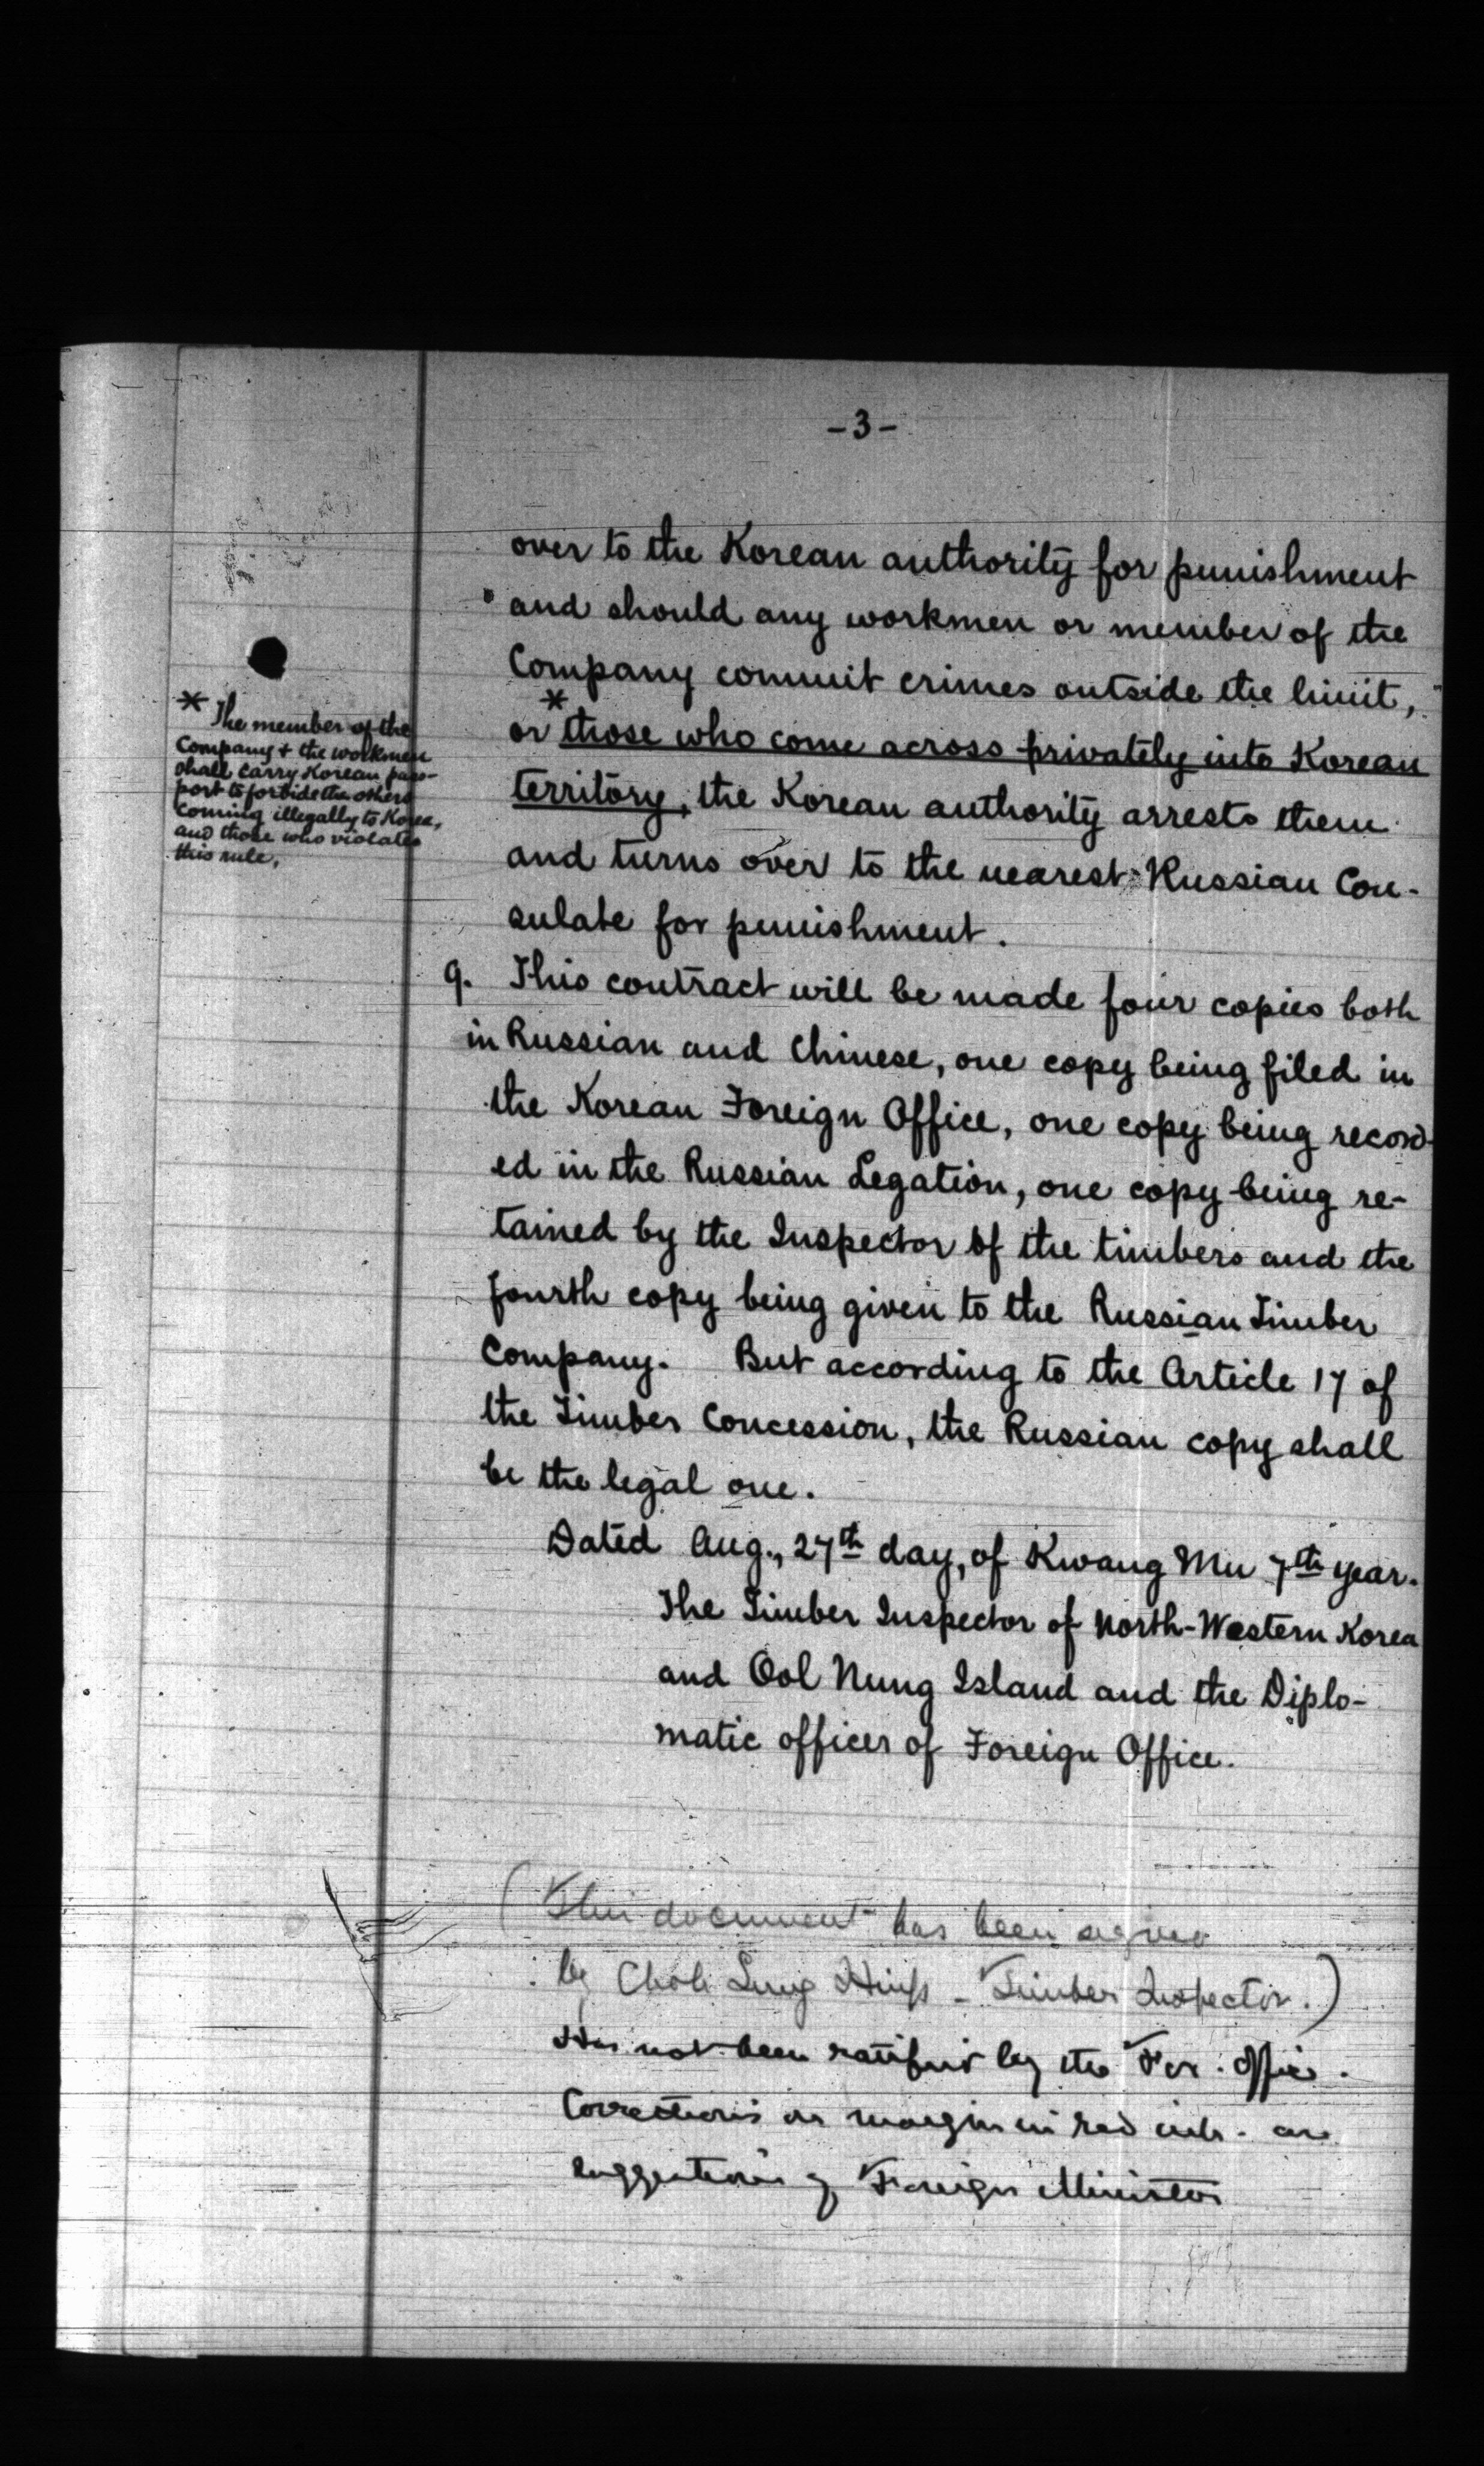 -3-
over to the Korean authority for punishment
and should any workmen or member of the
Company commit crimes outside the limit,
*
or those who come across privately into Korean
territory, the Korean authority arrests them
and turns over to the nearest Russian Con-
sulate for punishment.
* The member of the
Company & the workmen
shall carry Korean pass-
port to forbide the others
coming illegally to Korea,
and those who violates
this rule,
9. This contract will be made four copies both
in Russian and Chinese, one copy being filed in
the Korean Foreign Office, one copy being record-
ed in the Russian Legation, one copy being re-
tained by the Inspector of the timbers and the
fourth copy being given to the Russian Timber
Company. But according to the Article 17 of
the Timber Concession, the Russian copy shall
be the legal one.
Dated Aug., 27th day, of Kwang Mu 7th year.
The Timber Inspector of North-Western Korea
and Ool Nung Island and the Diplo-
matic officer of Foreign Office.
(This document has been signed
by Choh Sung Hiup - Timber Inspector.)
Has not been ratified by the For. Office.
Corrections on margin in red ink are
suggestions of Foreign Minister